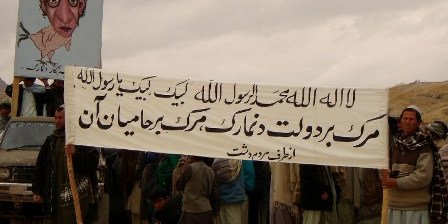 لا اله الله محمد الرسول الله لبیک لبیک یا رسول الله
مرک بر دولت دنمارک مرک بر حامیان آن
از طرف مردم دشت